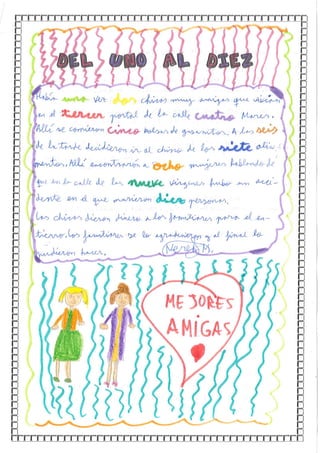 DEL UNO AL DIEZ
Había una vez dos chicas muy amigas que vivían
en el tercer portal de la calle cuatro Mares.
Allí se comieron cinco bolsas de gusanitos. A las seis
de la tarde decidieron ir al chino de los siete ali-
mentos. Allí encontraron a ocho mujeres hablando de
que en la calle de las nueve vírgenes hubo un acci-
dente en el que murieron diez personas.
Las chicas dieron dinero a los familiares para el en-
tierro. Los familiares se lo agradecieron y al final lo
pudieron hacer.
MEJORES
AMIGAS